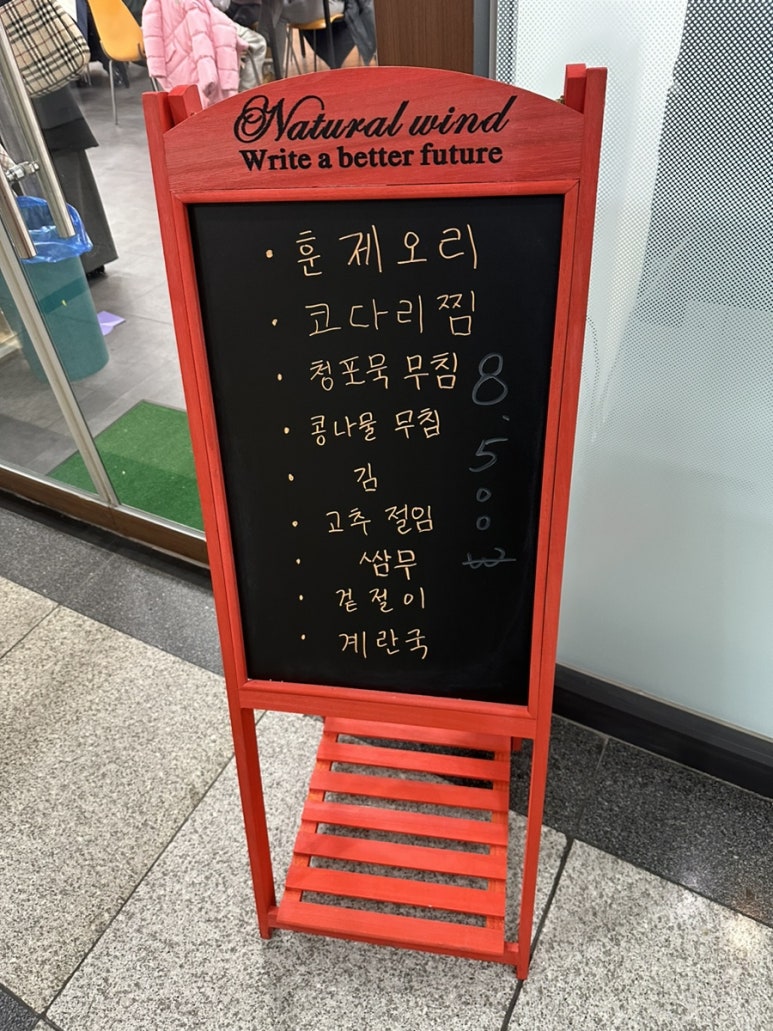 Natural wind
Write a better future
· 훈제오리
· 코다리찜
· 청포묵 무침
· 콩나물 무침
· 김
· 고추 절임
· 쌈무
· 겉절이
· 계란국
8.500₩